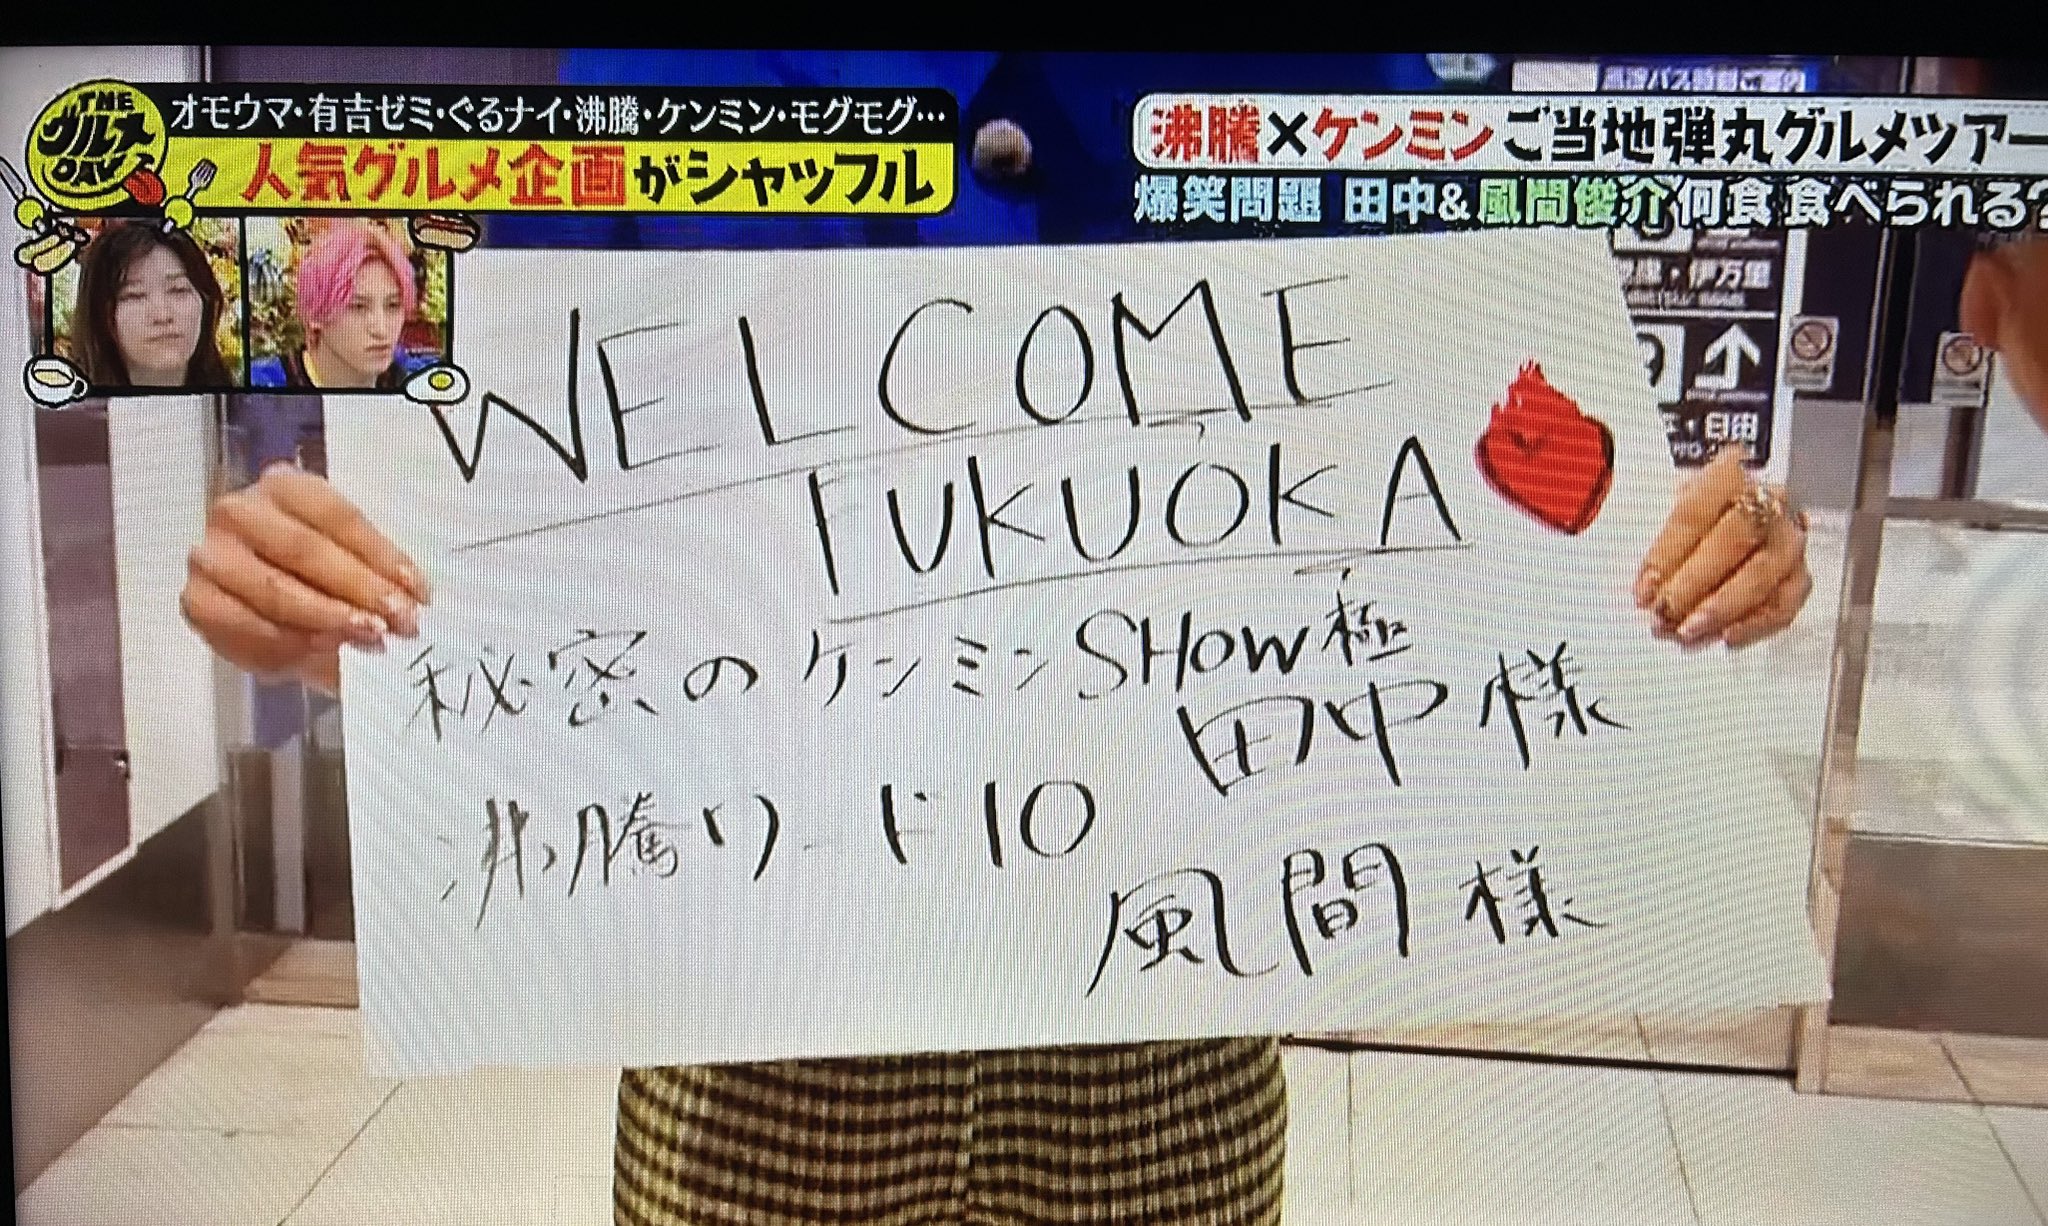 THE
グルメ
DAY
オモウマ・有吉ゼミ・ぐるナイ・沸騰・ケンミン・モグモグ…
人気グルメ企画がシャッフル
沸騰×ケンミンご当地弾丸グルメツアー
爆笑問題 田中&風間俊介何食食べられる?
WELCOME
FUKUOKA
秘密のケンミンSHOW極
田中様
沸騰ワード10
風間様
伊万里
日田